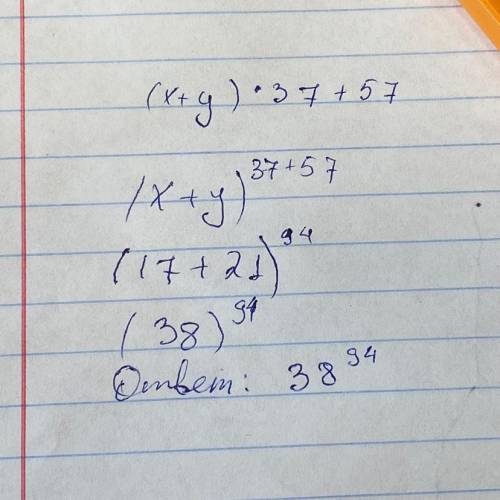 (x+y)·37+57
(x+y)³⁷⁺⁵⁷
(17+21)⁹⁴
(38)⁹⁴
Ответ: 38⁹⁴